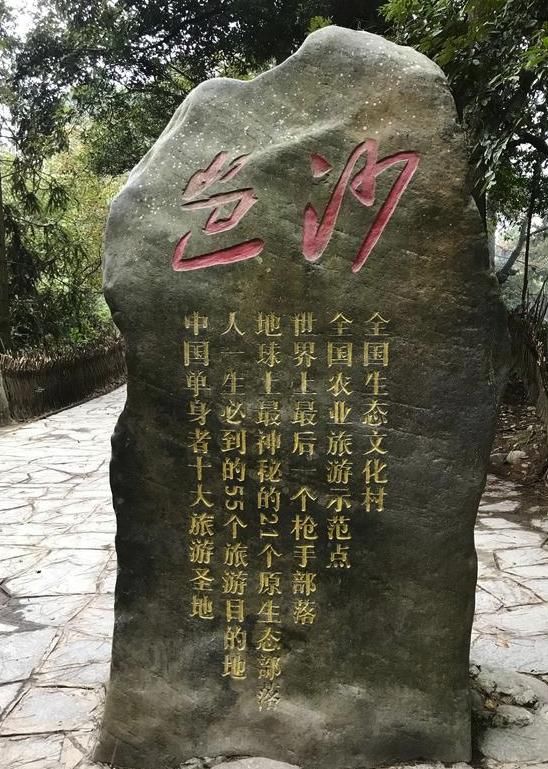 岜沙
全国生态文化村
全国农业旅游示范点
世界上最后一个枪手部落
地球上最神秘的21个原生态部落
人一生必到的55个旅游目的地
中国单身者十大旅游圣地